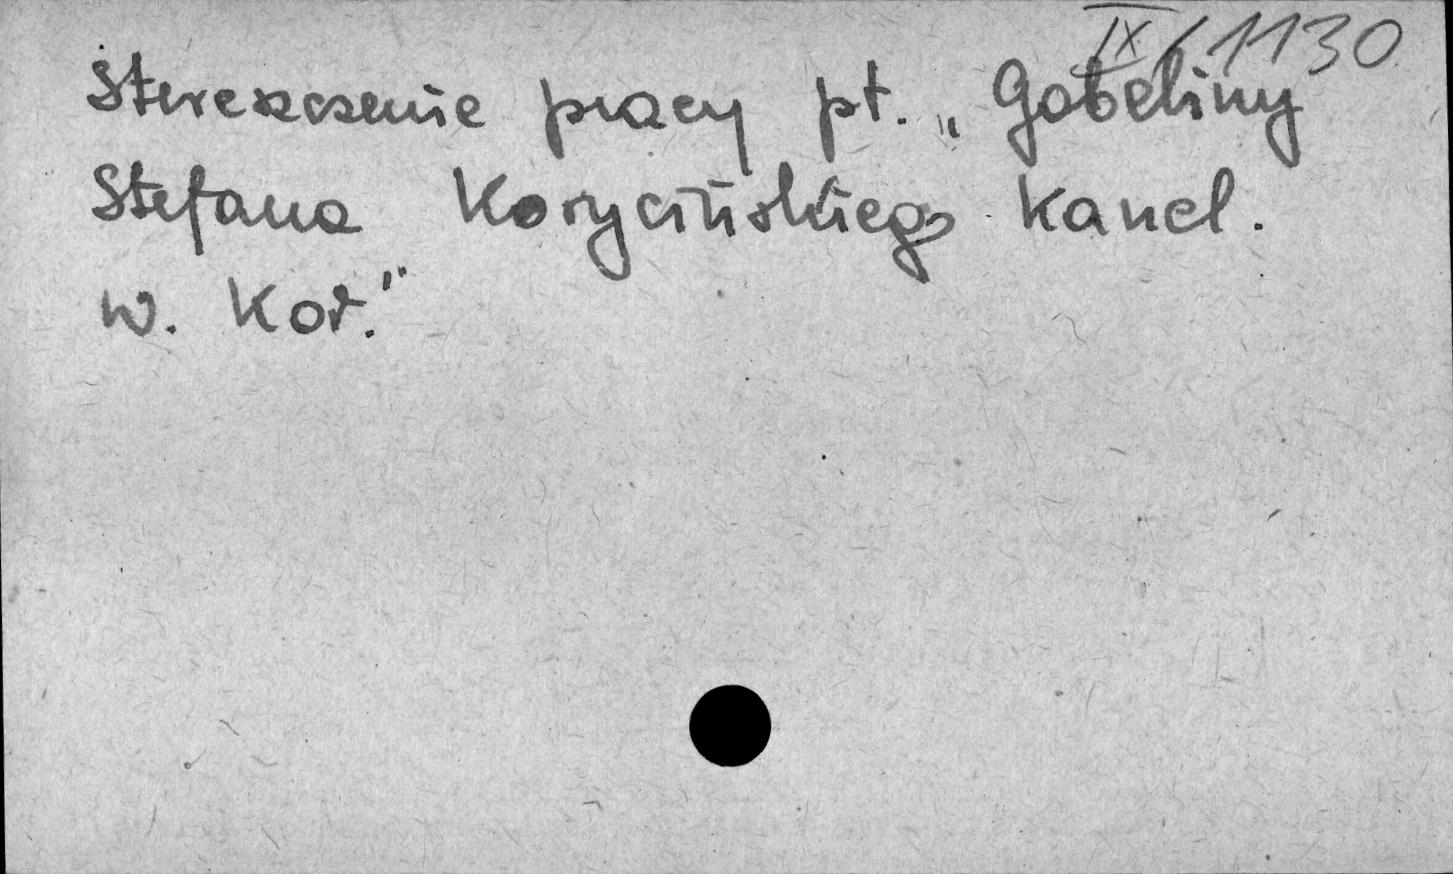 IX/1130
Streszczenie pracy pt. „Gobeliny
Stefana Korycińskiego kancl.
w. Kor."